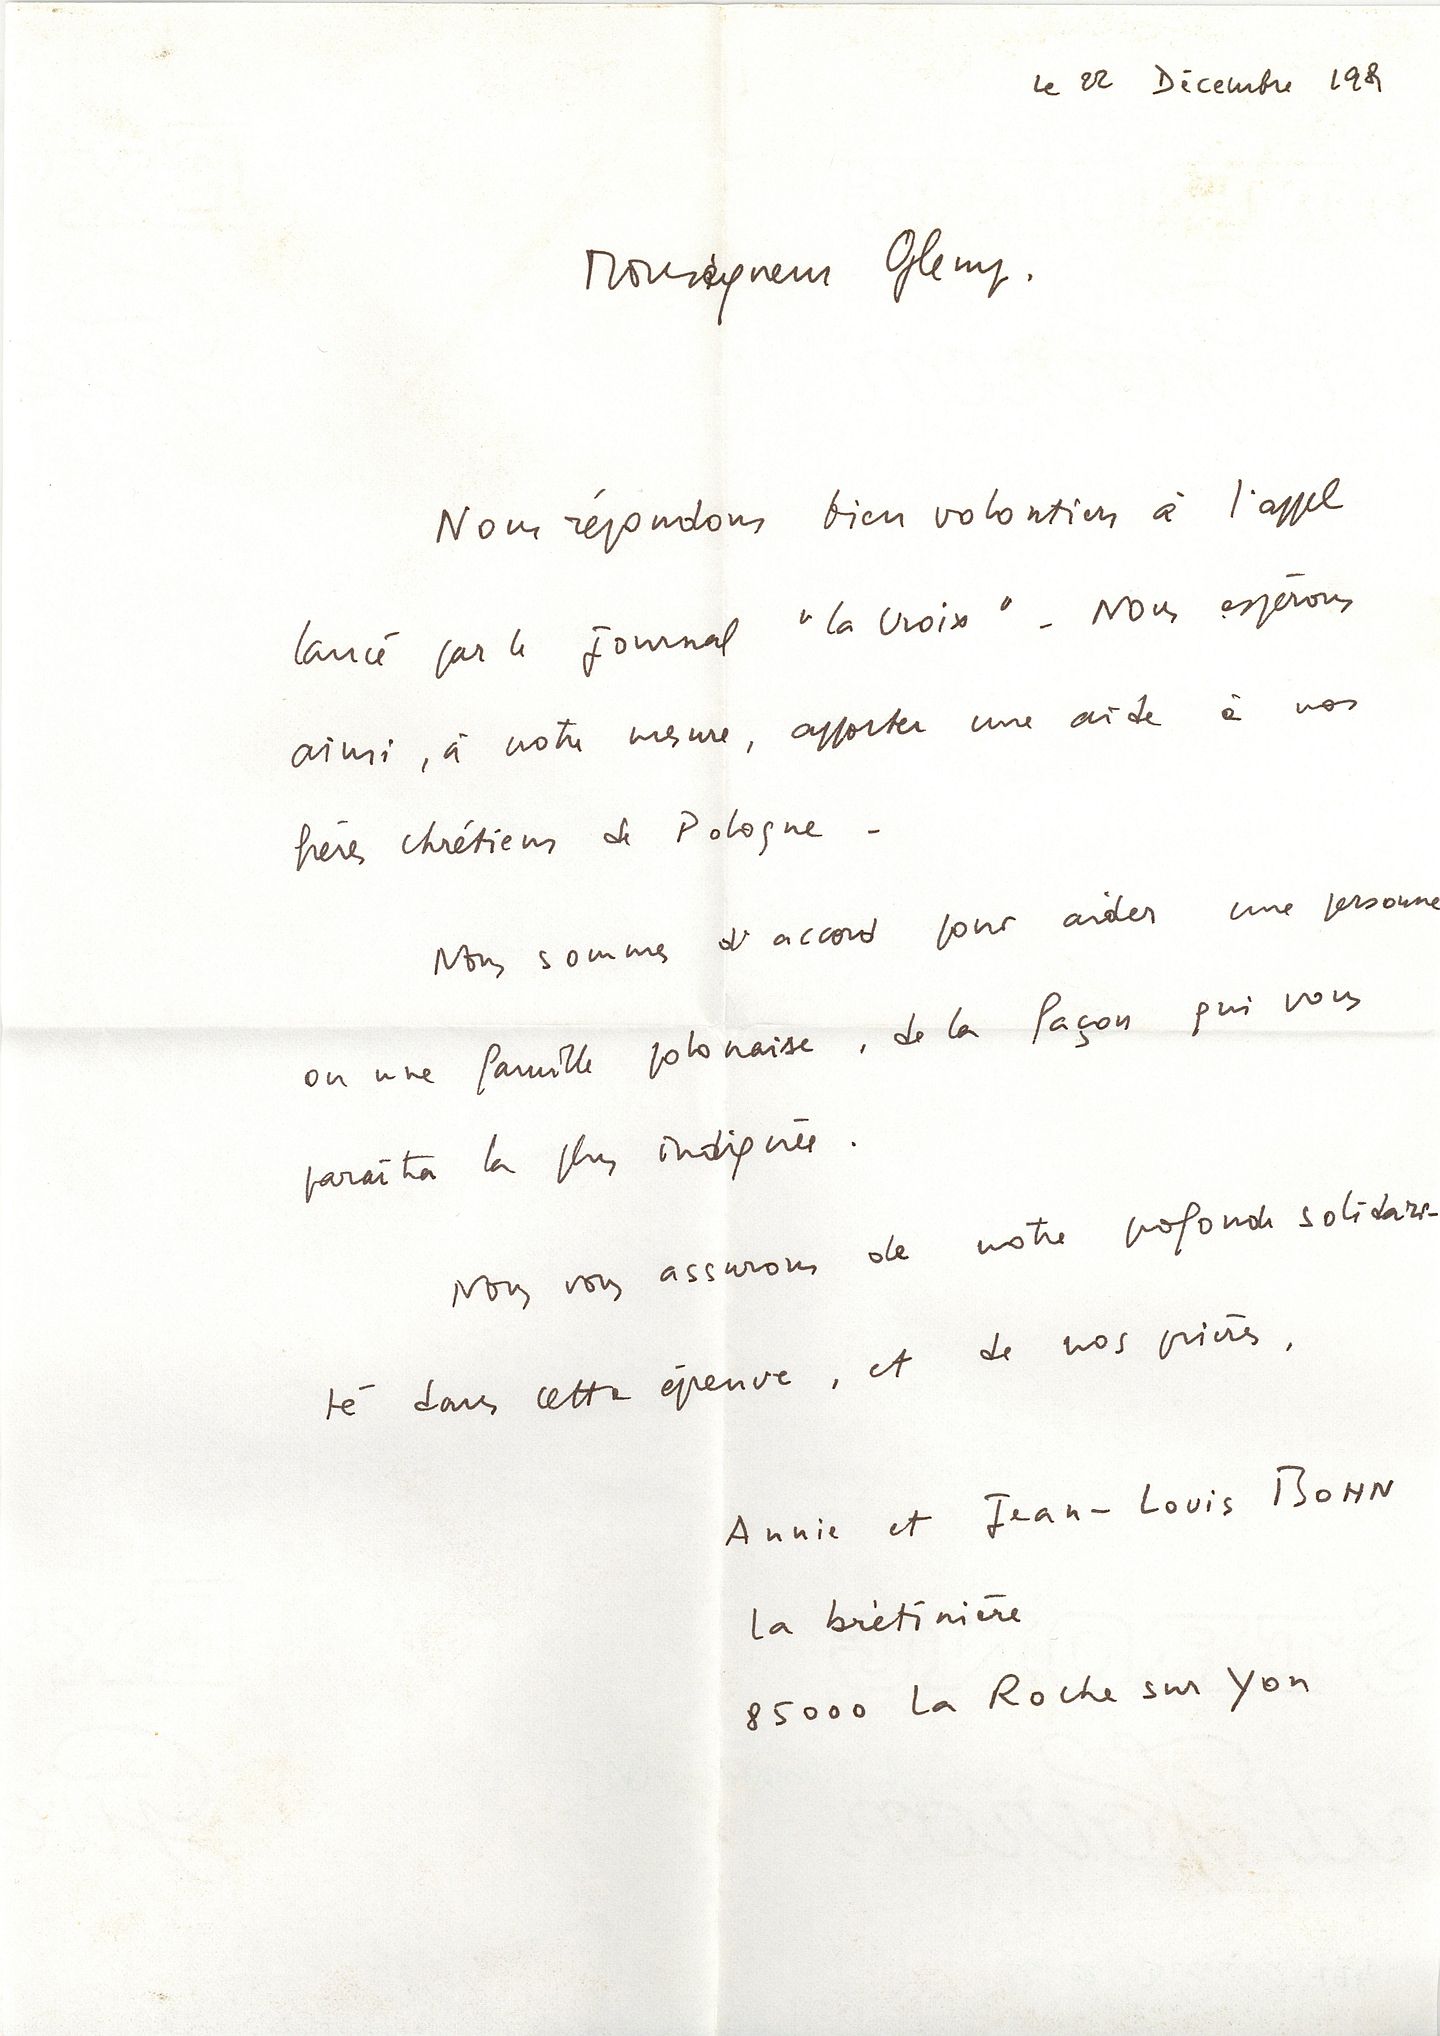 le 22 Décembre 1981
Monseigneur Glemp.
Nous répondons bien volontiers à l'appel
lancé par le journal "la Croix" - Nous espérons
ainsi, à notre mesure, apporter une aide à nos
frères chrétiens de Pologne -
Nous sommes d'accord pour aider une personne
ou une famille polonaise, de la façon qui vous
paraîtra la plus indiquée.
Nous vous assurons de notre profonde solidari-
té dans cette épreuve, et de nos prières,
Annie et Jean-Louis BOHN
la brétinière
85000 La Roche sur Yon